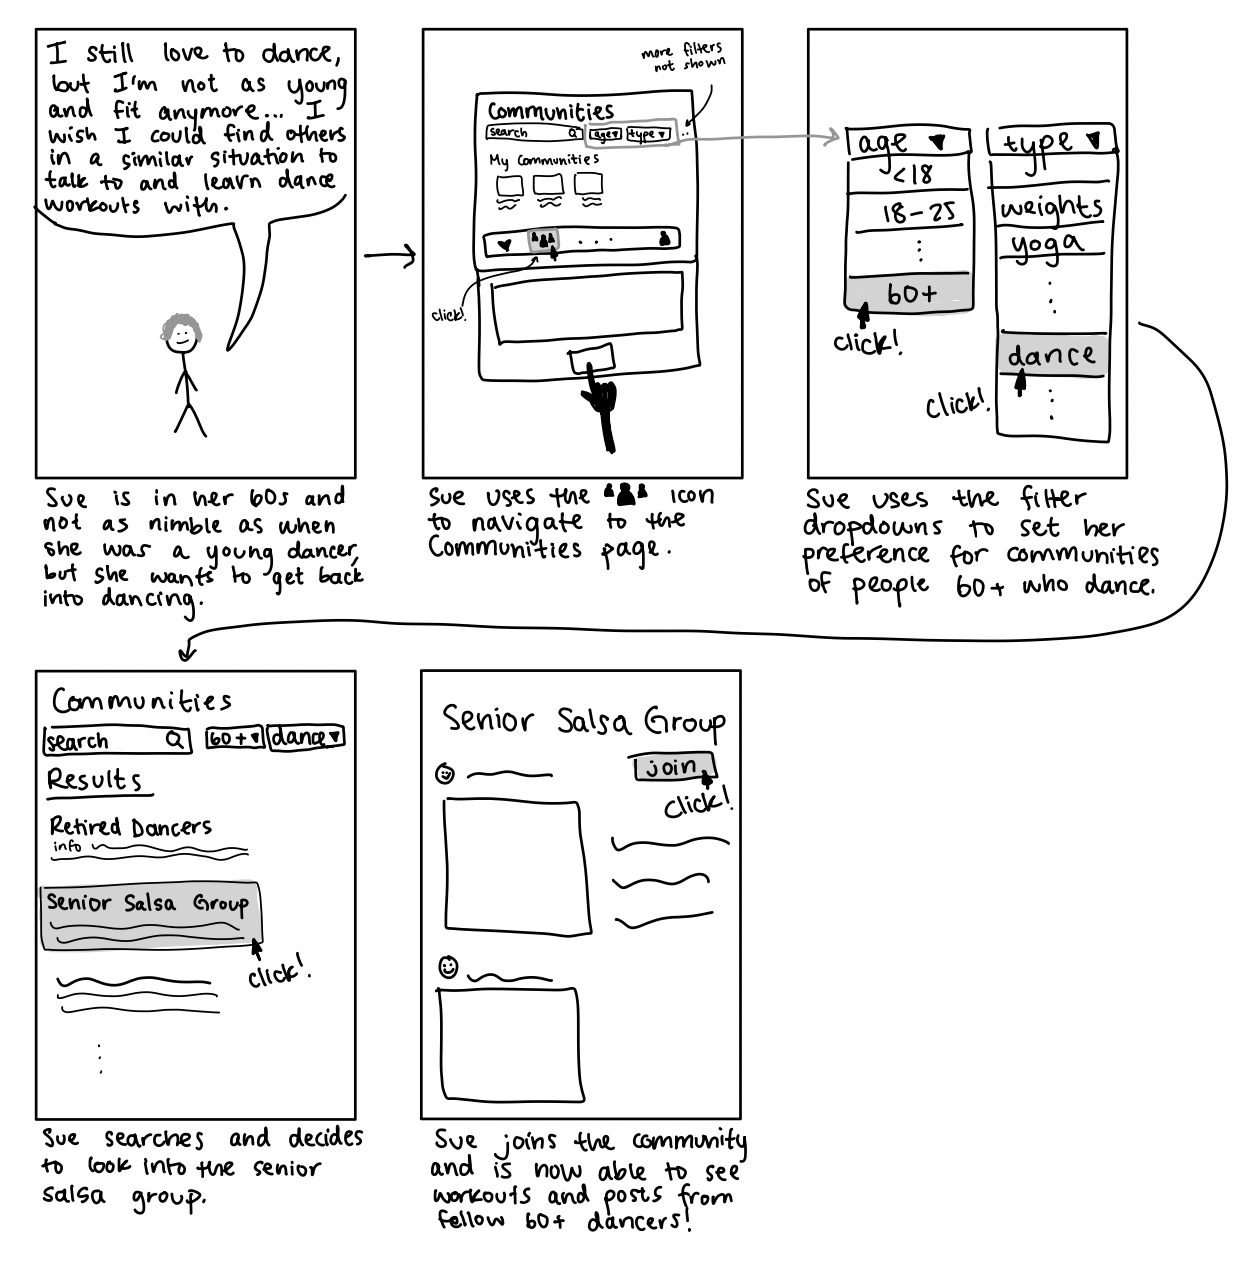 I still love to dance,
but I'm not as young
and fit anymore... I
wish I could find others
in a similar situation to
talk to and learn dance
workouts with.
Sue is in her 60s and
not as nimble as when
she was a young dancer,
but she wants to get back
into dancing.
more filters
not shown
Communities
search age type
My Communities
click!
Sue uses the icon
to navigate to the
Communities page.
age
<18
18-25
60+
click!
type
weights
yoga
dance
click!
Sue uses the filter
dropdowns to set her
preference for communities
of people 60+ who dance.
Communities
search 60+ dance
Results
Retired Dancers
info
Senior Salsa Group
click!
Sue searches and decides
to look into the senior
salsa group.
Senior Salsa Group
join
click!
Sue joins the community
and is now able to see
workouts and posts from
fellow 60+ dancers!